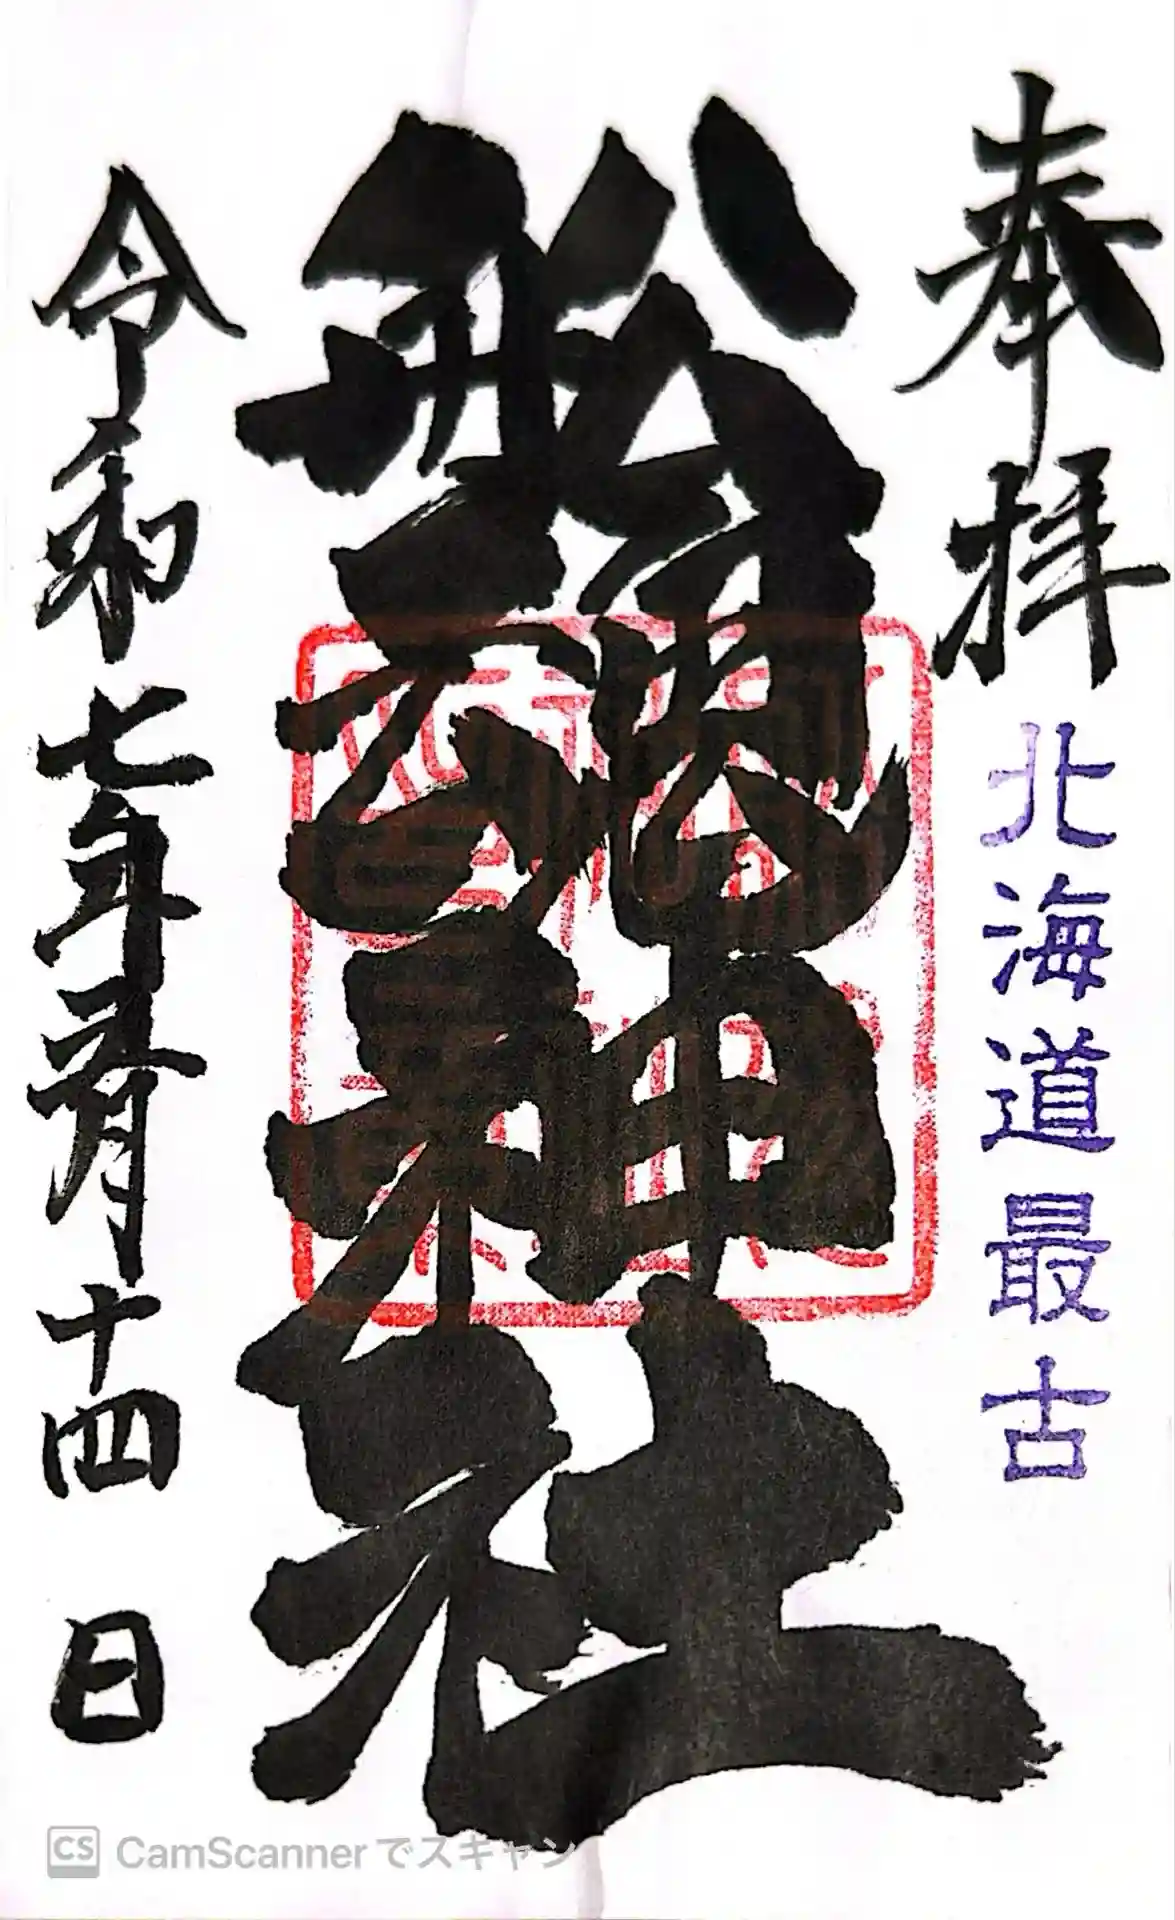 奉拝
北海道最古
船魂神社
令和七年五月十四日
CS CamScannerでスキャン